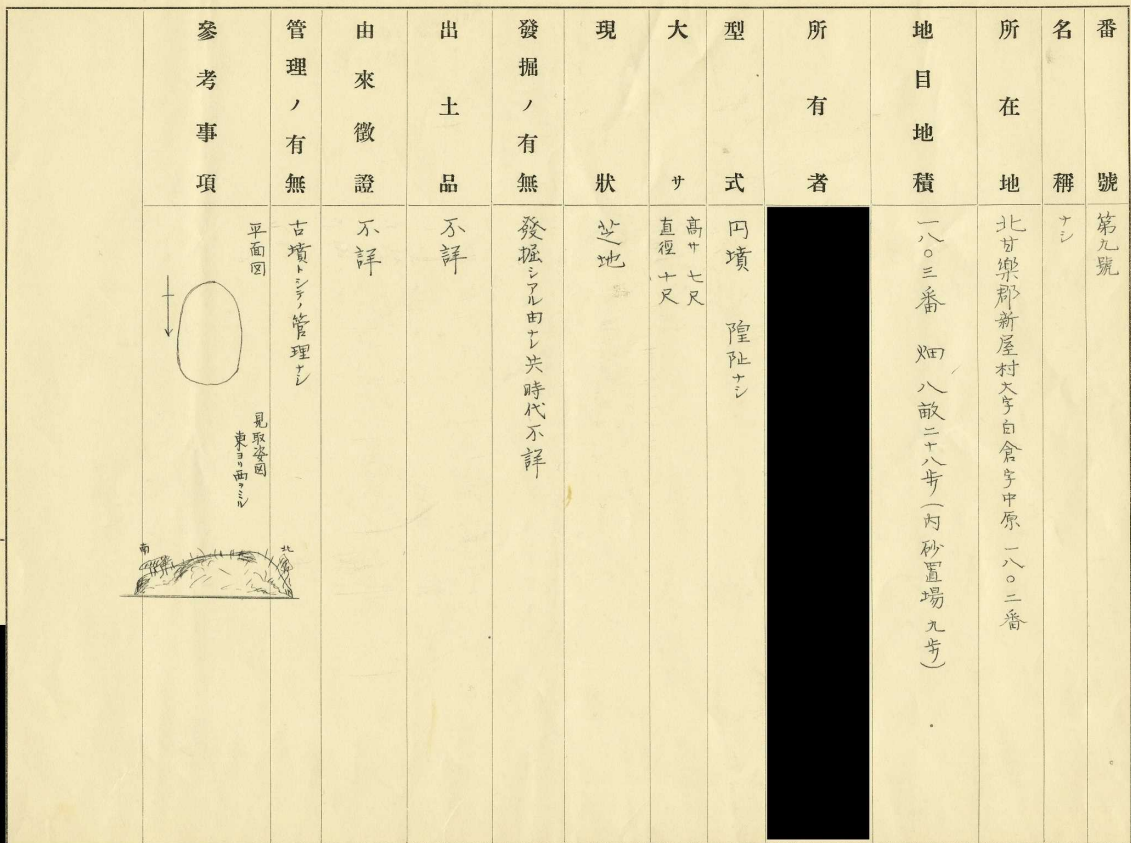 番號
第九號
名稱
ナシ
所在地
北甘樂郡新屋村大字白倉字中原一八〇二番
地目地積
一八〇三番 畑 八畝二十八歩(内砂置場九歩)
所有者
型式
円墳 隍阯ナシ
大サ
高サ 七尺
直徑 十尺
現狀
芝地
發掘ノ有無
發掘シアル由ナレ共時代不詳
出土品
不詳
由來徵證
不詳
管理ノ有無
古墳トシテノ管理ナシ
參考事項
平面図
見取姿図
東ヨリ西ヲミル
南
北